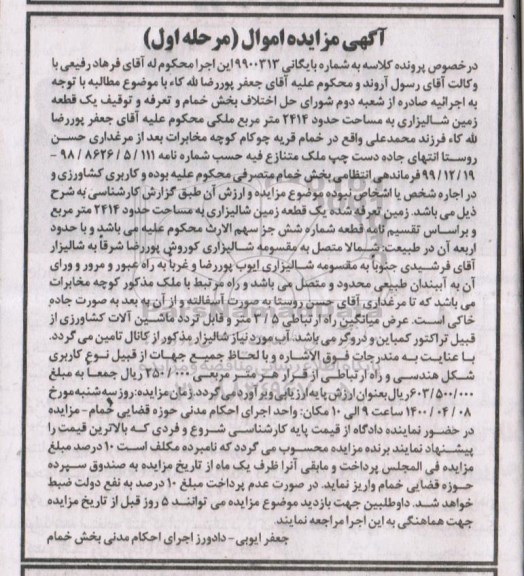 آگهی مزایده اموال (مرحله اول)
درخصوص پرونده کلاسه به شماره بایگانی ۱۹۹۰۰۳۱۳این اجرا محکوم له آقای فرهاد رفیعی با
وکالت آقای رسول آروند و محکوم علیه آقای جعفر پوررضا لله کاء با موضوع مطالبه با توجه
به اجرائیه صادره از شعبه دوم شورای حل اختلاف بخش خمام و تعرفه و توقیف یک قطعه
زمین شالیزاری به مساحت حدود ۲۴۱۴ متر مربع ملکی محکوم علیه آقای جعفر پوررضا
لله کاء فرزند محمدعلی واقع در خمام قریه چوکام کوچه مخابرات بعد از مرغداری حسن
روستا انتهای جاده دست چپ ملک متنازع فیه حسب شماره نامه ۱۱۱ / ۵ / ۸۶۲۶ / ۹۸ -
۹۹/۱۲/۱۹ فرماندهی انتظامی بخش خمام متصرفی محکوم علیه بوده و کاربری کشاورزی و
در اجاره شخص یا اشخاص نبوده موضوع مزایده و ارزش آن طبق گزارش کارشناسی به شرح
ذیل می باشد. زمین تعرفه شده یک قطعه زمین شالیزاری به مساحت حدود ۲۴۱۴ متر مربع
و براساس تقسیم نامه قطعه شماره شش جز سهم الارث محکوم علیه می باشد و با حدود
اربعه آن در طبیعت: شمالا متصل به مقسومه شالیزاری کوروش پوررضا شرقا به شالیزار
آقای فرشیدی جنوبا به مقسومه شالیزاری ایوب پوررضا و غربا به راه عبور و مرور و ورای
آن به آببندان طبیعی محدود و متصل می باشد و راه مرتبط با ملک مذکور کوچه مخابرات
می باشد که تا مرغداری آقای حسن روستا به صورت آسفالته و از آن به بعد به صورت جاده
خاکی است. عرض میانگین راه ارتباطی ۳/۵ متر و قابل تردد ماشین آلات کشاورزی از
قبیل تراکتور کمباین و دروگر می باشد. آب مورد نیاز شالیزار مذکور از کانال تامین می گردد.
با عنایت به مندرجات فوق الاشاره و با لحاظ جمیع جهات از قبیل نوع کاربری
شکل هندسی و راه ارتباطی از قرار هر متر مربعی ۲۵۰/۰۰۰ ریال جمعا به مبلغ
۶۰۳/۵۰۰/۰۰۰ریال بعنوان ارزش پایه ارزیابی و برآورد می گردد. زمان مزایده: روز سه شنبه مورخ
۱۴۰۰/۰۴/۰۸ ساعت ۹ الی ۱۰ مکان: واحد اجرای احکام مدنی حوزه قضایی خمام - مزایده
در حضور نماینده دادگاه از قیمت پایه کارشناسی شروع و فردی که بالاترین قیمت را
پیشنهاد نمایند برنده مزایده محسوب می گردد که نامبرده مکلف است ۱۰ درصد مبلغ
مزایده فی المجلس پرداخت و مابقی آنرا ظرف یک ماه از تاریخ مزایده به صندوق سپرده
حوزه قضایی خمام واریز نماید. در صورت عدم پرداخت مبلغ ۱۰ درصد به نفع دولت ضبط
خواهد شد. داوطلبین جهت بازدید موضوع مزایده می توانند ۵ روز قبل از تاریخ مزایده
جهت هماهنگی به این اجرا مراجعه نمایند.
جعفر ایوبی - دادورز اجرای احکام مدنی بخش خمام